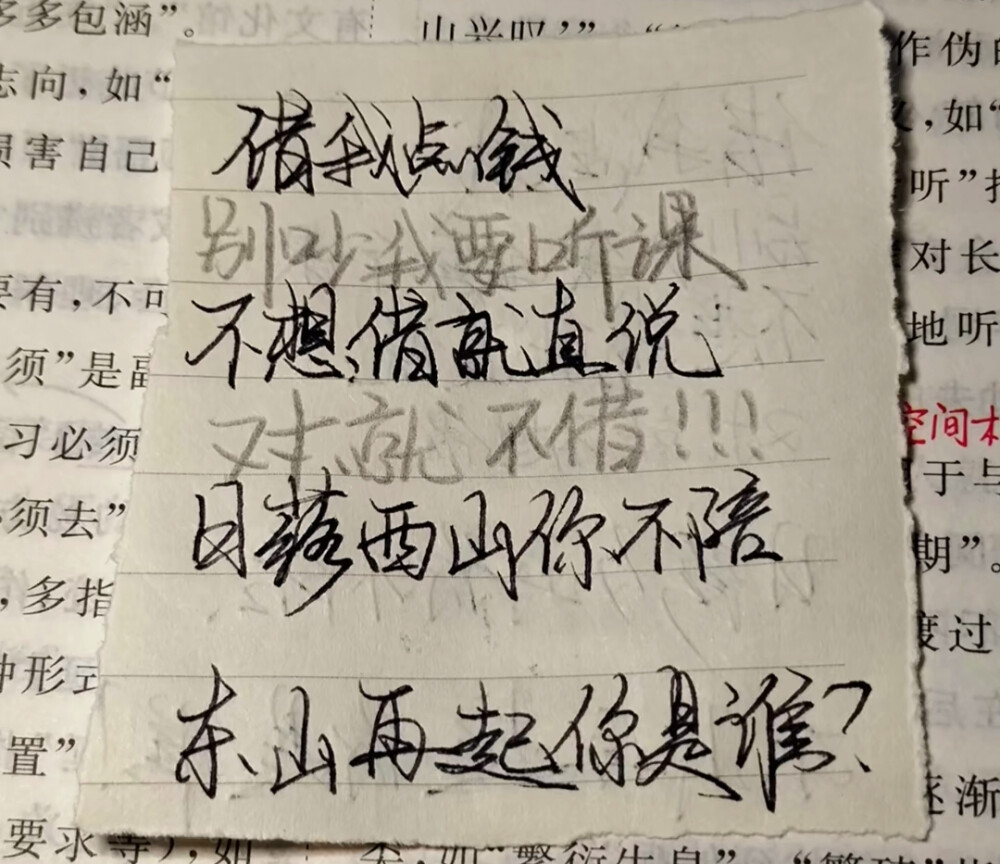 多多包涵”。
志向，如“
损害自己
要有，不可
须”是副
习必须
须去”
，多指
种形式
置”
要求等），如
借我点钱
别吵我要听课
不想借就直说
对就不借！！！
日落西山你不陪
东山再起你是谁？
作伪的
，如“
听”指
对长
地听
空间才
于与
期”。
度过
逐渐
，如“繁衍生息”